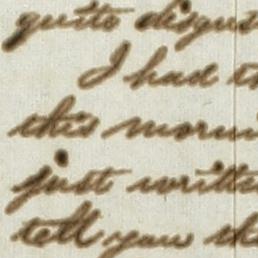 quite disgus
I had th
this morni
just writte
tell you th